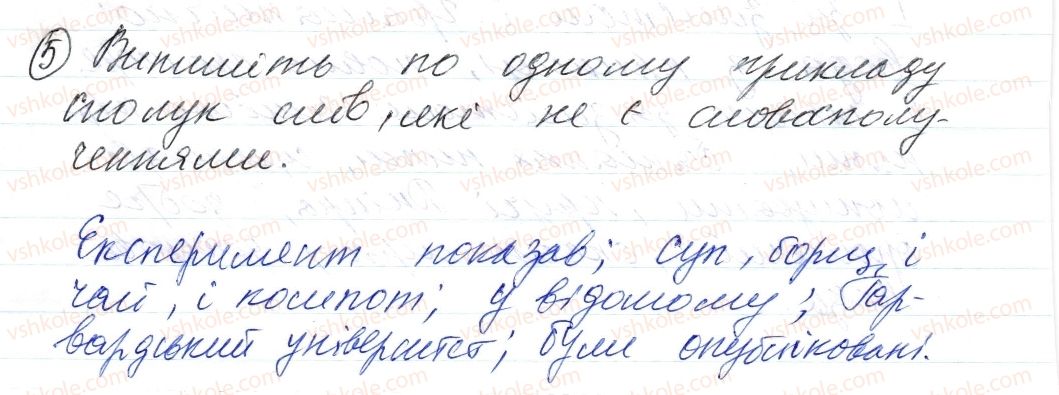 5 Випишіть по одному прикладу
сполук слів, які не є словосполу-
ченнями.
Експеримент показав; суп, борщ, і
чай, і компот; у відомому; Гар-
вардський університет; були опубліковані.